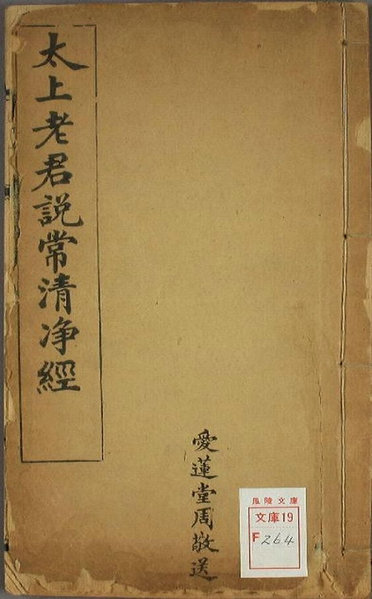 太上老君說常清净經
愛蓮堂周敬送
風陵文庫
文庫19
F 264